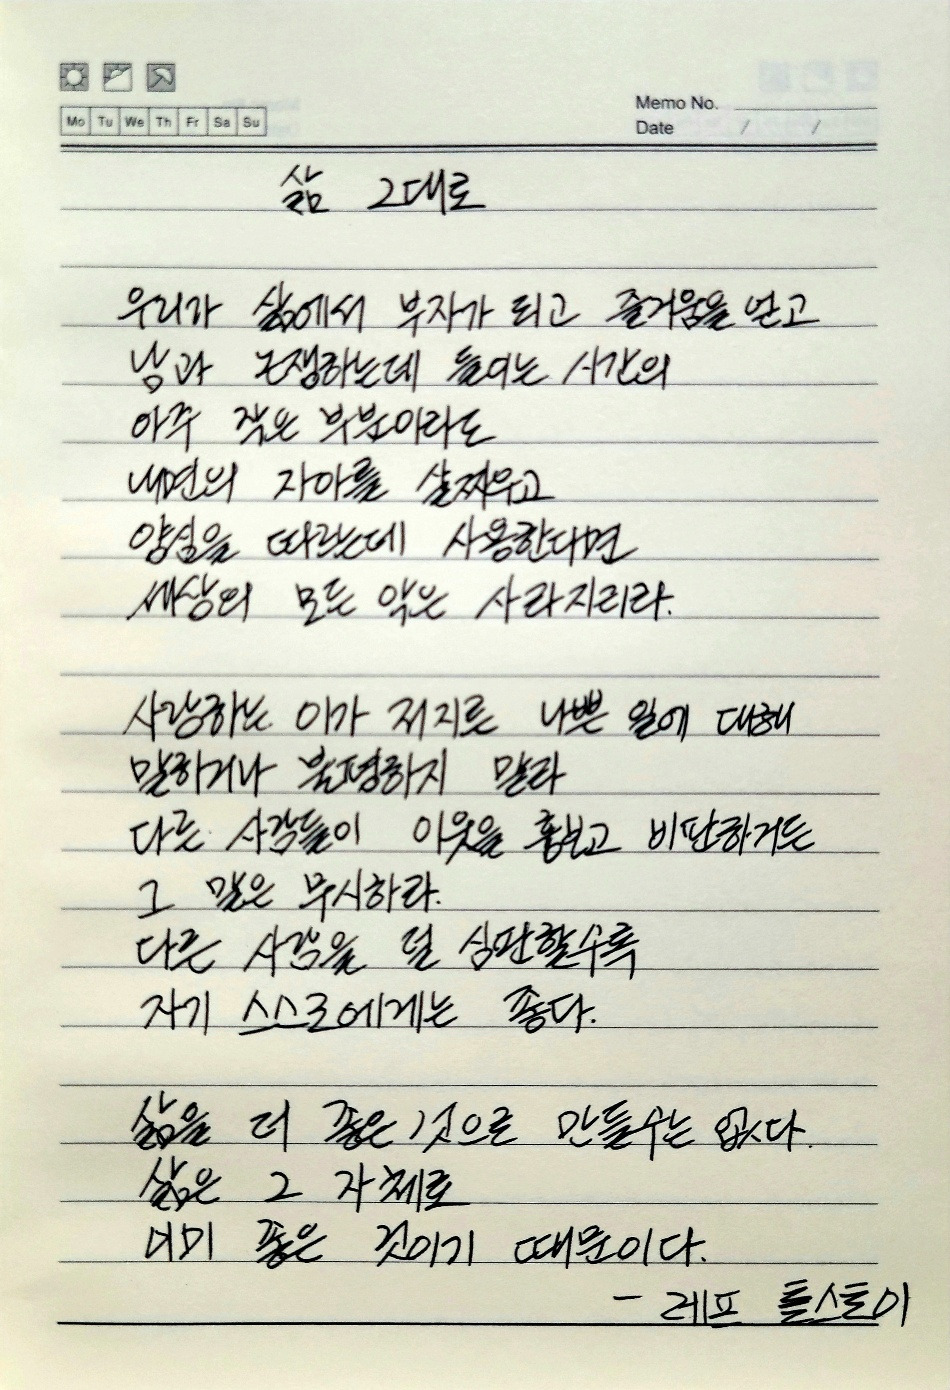 Mo Tu We Th Fr Sa Su
Memo No.
Date / /
삶 그대로
우리가 삶에서 부자가 되고 즐거움을 얻고
남과 논쟁하는데 들이는 시간의
아주 작은 부분이라도
내면의 자아를 살찌우고
양심을 따르는데 사용한다면
세상의 모든 악은 사라지리라.
사랑하는 이가 저지른 나쁜 일에 대해
말하거나 불평하지 말라
다른 사람들이 이웃을 흉보고 비판하거든
그 말은 무시하라.
다른 사람을 덜 심판할수록
자기 스스로에게는 좋다.
삶을 더 좋은 것으로 만들수는 없다.
삶은 그 자체로
이미 좋은 것이기 때문이다.
- 레프 톨스토이